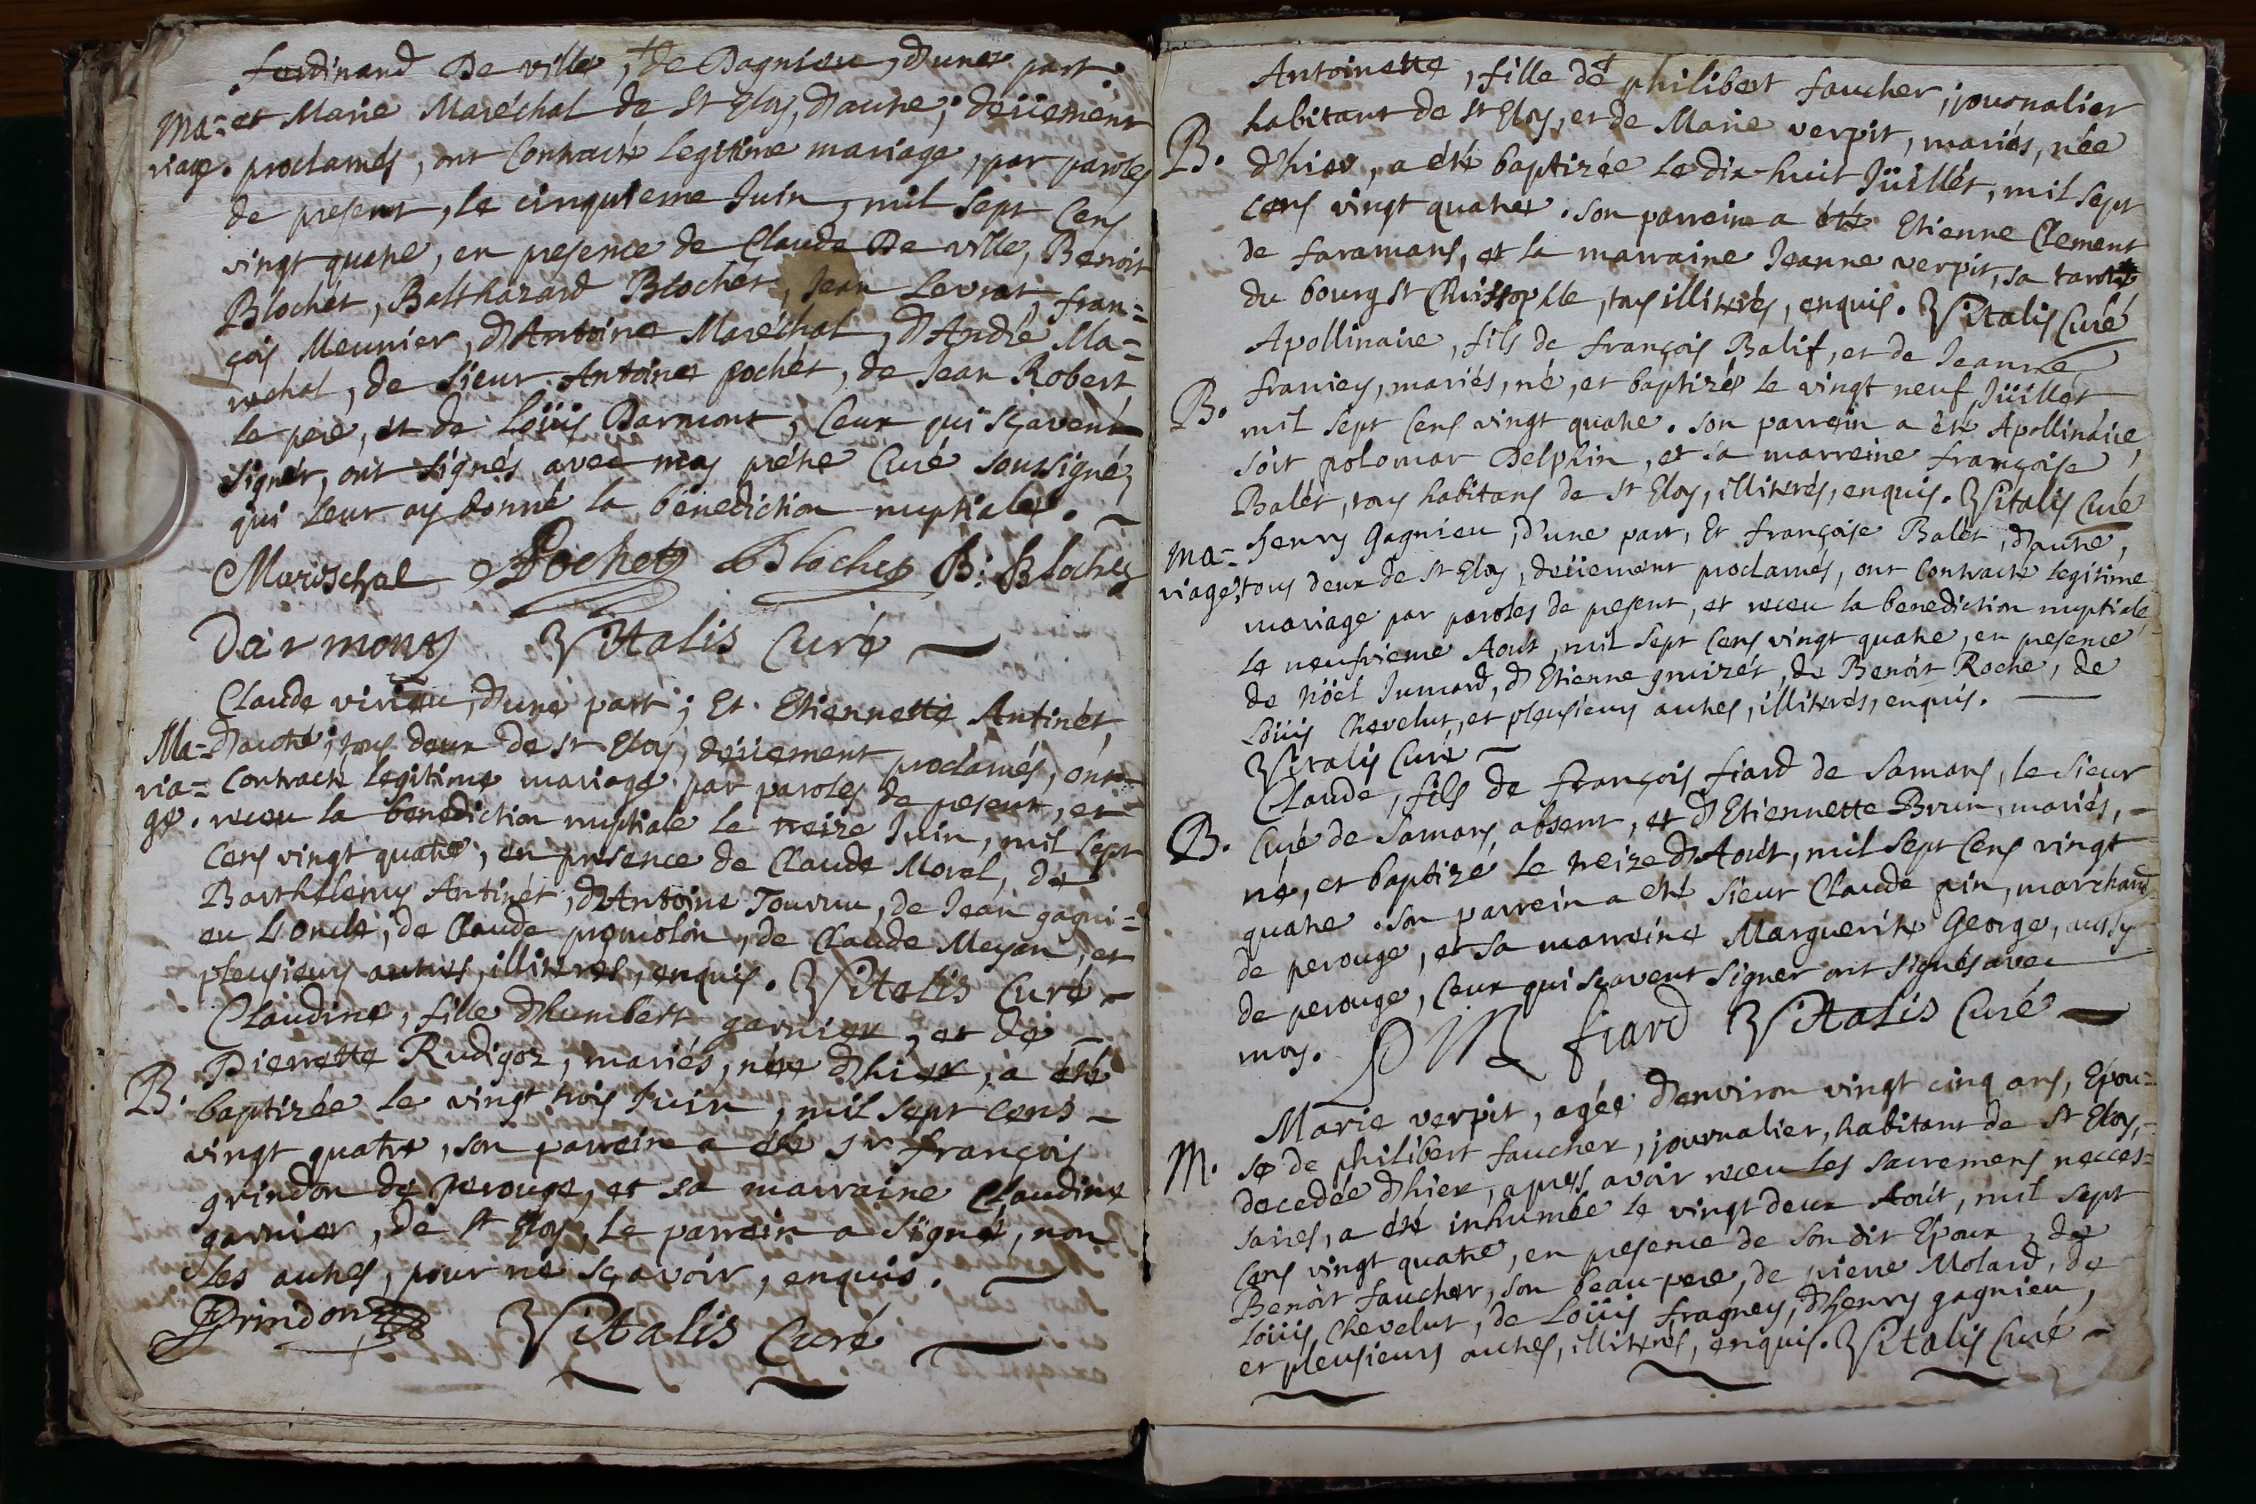 Ferdinand De ville, de Dagnieu, d'une part
Ma= et Marie Maréchal de St Eloy, d'autre; deüement
riage. proclamés, ont Contracté legitime mariage, par paroles
de present, le cinquieme Juin, mil sept Cens
vingt quatre, en presence de Claude De ville, Benoit
Blochet, Balthazard Blochet, Jean Levrat, fran=
çois Meunier, d'Antoine Maréchal, d'André Ma=
rechal, de sieur Antoine pochet, de Jean Robert
le pere, et de Loüis Darmont, Ceux qui sçavent
signér, ont signés avec moy prétre Curé soussigné,
qui leur ay donné la bénediction nuptiale.
Mareschal Pochet Blochet B: Blochet
Darmont Vitalis Curé
Claude virieu, d'une part; Et Etiennette Antinét,
Ma= d'autre; tous deux de St Eloy, deüement proclamés, ont
ria= Contracté legitime mariage par paroles de present, et
ge. receu la benediction nuptiale le treize Juin, mil sept
Cens vingt quatre, en presence de Claude Morel, de
Barthelemy Antinét, d'Antoine Tourru, de Jean gagni=
eu L'oncle, de Claude promolon, de Claude Meyan, et
pleusieurs autres, illiterés, enquis. Vitalis Curé
Claudine, fille d'humbert garnier, et de
Pierrette Rudigoz, mariés, née d'hier, a été
B. baptizée le vingt trois Juin, mil sept cens
vingt quatre, son parrein a été sr françois
grindon de perouge, et sa marraine Claudine
garnier, de St Eloy, le parrein a signé, non
les autres, pour ne sçavoir, enquis.
Grindon Vitalis Curé
Antoinette, fille de philibert faucher, journalier
habitant de St Eloy, et de Marie verpit, mariés, née
B. d'hier, a été baptizée le dix-huit Jüillét, mil sept
cens vingt quatre. son parrein a été Etienne Clement
de faramans, et la marraine Jeanne verpit, sa tante
du bourg St Christophle, tous illiterés, enquis. Vitalis Curé
Apollinaire, fils de françois Balif, et de Jeanne
franiey, mariés, né, et baptizé le vingt neuf Jüillet
B. mil sept Cens vingt quatre. son parrein a été Apollinaire,
soit polomar Delphin, et sa marreine françoise
Balét, tous habitans de St Eloy, illiterés, enquis. Vitalis Curé
henry Gagnieu, d'une part, Et françoise Balét, d'autre,
Ma=
riage. tous deux de St Eloy, deüement proclamés, ont Contracté legitime
mariage par paroles de present, et receu la benediction nuptiale
le neufvieme Aoút, mil sept Cens vingt quatre, en presence
de Nöel Jumard, d'Etienne gruizét, de Benoit Roche, de
Loüis Chevelut, et pleusieurs autres, illiterés, enquis.
Vitalis Curé
Claude, fils de françois fiard de Samans, le sieur
B. Curé de Samans absent, et d'Etiennette Brun, mariés,
né, et baptizé le treize d'Aoút, mil sept Cens vingt
quatre. son parrein a été sieur Claude pin, marchand
de perouge, et sa marreine Marguerite George, aussy
de perouge, Ceux qui sçavent signer ont signés avec
moy. fiard Vitalis Curé
Marie verpit, agée d'environ vingt cinq ans, Epou=
M. se de philibert faucher, journalier, habitant de St Eloy,
decedée d'hier, apres avoir receu les sacremens neces=
saires, a été inhumée le vingt deux Aoút, mil sept
Cens vingt quatre, en presence de son dit Epoux, de
Benoit faucher, son beau-pere, de pierre Molard, de
Loüis Chevelut, de Loüis fragney, d'henry gagnieu,
et pleusieurs autres, illiterés, enquis. Vitalis Curé